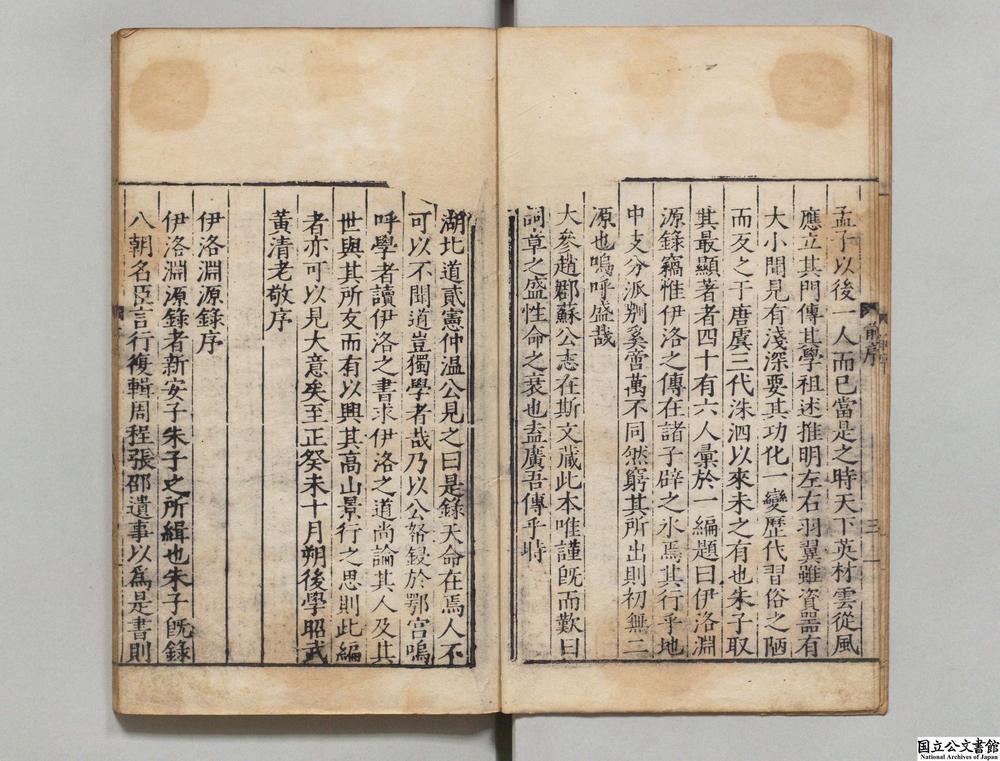 孟子以後一人而已當是之時天下英材雲從風
應立其門傳其學祖述推明左右羽翼雖資器有
大小聞見有淺深要其功化一變歷代習俗之陋
而友之于唐虞三代洙泗以來未之有也朱子取
其最顯著者四十有六人彙於一編題曰伊洛淵
源錄竊惟伊洛之傳在諸子辟之水焉其行乎地
中支分派别奚啻萬不同然窮其所出則初無二
源也嗚呼盛哉
大參趙郡蘇公志在斯文蔵此本唯謹旣而歎曰
詞章之盛性命之衰也盍廣吾傳乎時
湖北道貳憲仲温公見之曰是錄天命在焉人不
可以不聞道豈獨學者哉乃以公帑鋟於鄂宮嗚
呼學者讀伊洛之書求伊洛之道尚論其人及其
世與其所友而有以興其高山景行之思則此編
者亦可以見大意矣至正癸未十月朔後學昭武
黃清老敬序
伊洛淵源錄序
伊洛淵源錄者新安子朱子之所緝也朱子旣錄
八朝名臣言行復輯周程張邵遺事以爲是書則
前序
三
国立公文書館
National Archives of Japan